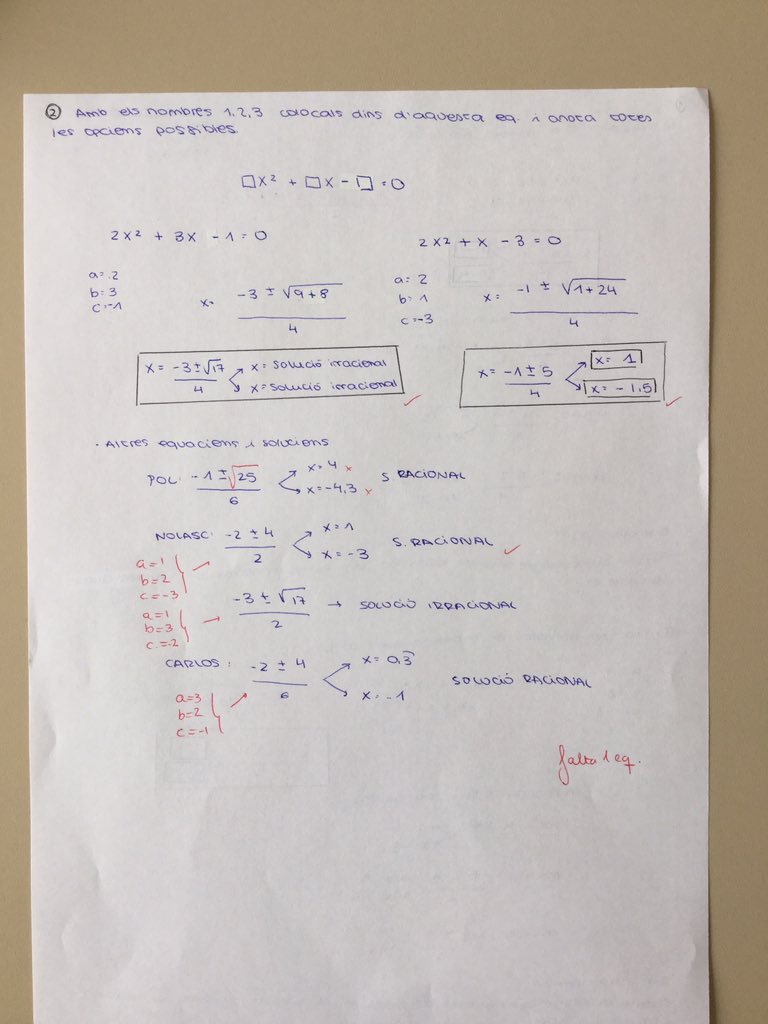 ② Amb els nombres 1,2,3 colocals dins d'aquesta eq. i anota totes
les opcions possibles.
□x² + □x - □ = 0
2x² + 3x - 1 = 0
a = 2
b = 3
c = -1
x = (-3 ± √(9+8))/4
x = (-3 ± √17)/4
x = solució irracional
x = solució irracional
2x² + x - 3 = 0
a = 2
b = 1
c = -3
x = (-1 ± √(1+24))/4
x = (-1 ± 5)/4
x = 1
x = -1.5
· Altres equacions i solucions
POL: (-1 ± √25)/6
x = 4 x
x = -4,3 x
S RACIONAL
NOLASC: (-2 ± 4)/2
x = 1
x = -3
S. RACIONAL
a=1
b=2
c=-3
(-3 ± √17)/2 → SOLUCIÓ IRRACIONAL
a=1
b=3
c=-2
CARLOS: (-2 ± 4)/6
x = 0,3̂
x = -1
SOLUCIÓ RACIONAL
a=3
b=2
c=-1
falta 1 eq.